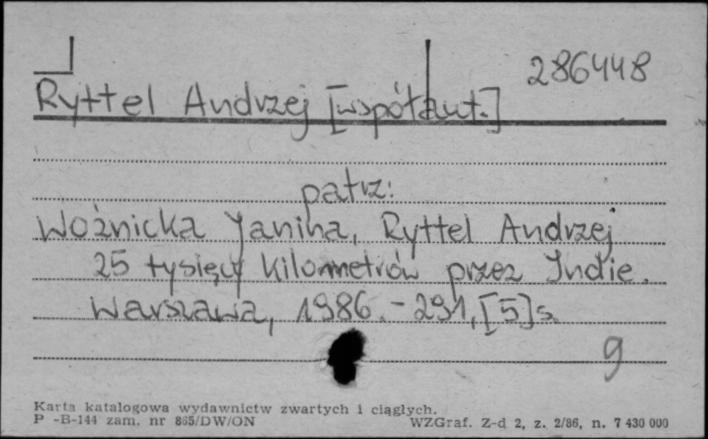 286448
Ryttel Andrzej [współaut.]
patrz:
Woźnicka Janina, Ryttel Andrzej
25 tysięcy kilometrów przez Indie.
Warszawa, 1986. - 291, [5] s.
g
Karta katalogowa wydawnictw zwartych i ciągłych.
P -B-144 zam. nr 865/DW/ON WZGraf. Z-d 2, z. 2/86, n. 7 430 000